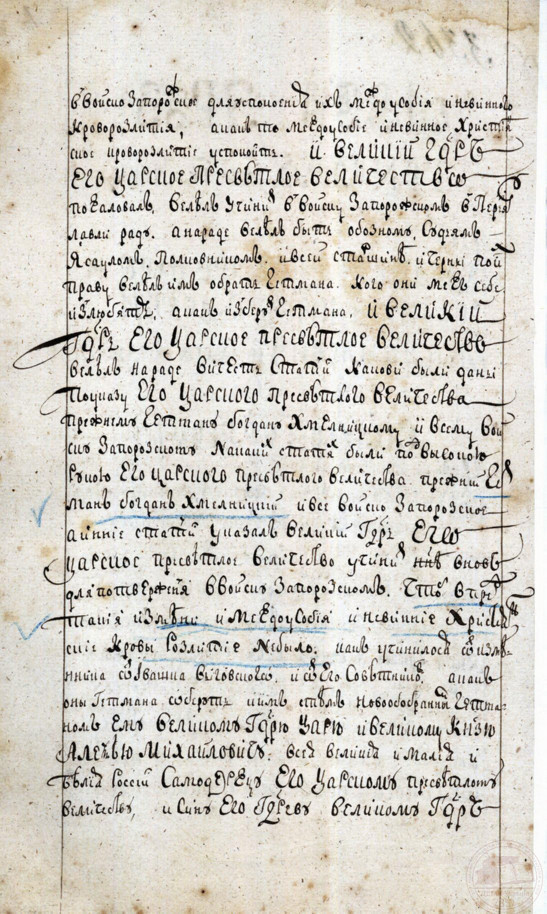 в войско Запорожское для успокоения их междоусобія и невинного
кроворозлитія, а какъ то междоусобіе и невинное христия
ское кроворозлитіе успокоитъ. И великій Гдрь
Его Царское пресвѣтлое величество
пожаловалъ, велѣлъ учинит в войску Запорожскомъ в Перея
лавли раду. а на радѣ велѣлъ быть обозному, судямъ
ясауломъ, полковникомъ, и всей старшинѣ, и черни
праву велѣлъ имъ обрать гетмана. кого они межъ себе
излюбятъ, а какъ изберутъ гетмана, и великій
Гдрь Его Царское пресвѣтлое величество
велѣлъ на радѣ вичесть статьи каковы были даны
по указу Его Царского пресвѣтлого величества
прежнему гетману Богдану Хмелницкому и всему вой
ску Запорозскому на какихъ статяхъ были под высокою
рукою Его Царского пресвѣтлого величества прежній гет
манъ Богданъ Хмелницкій и все войско Запорозское
а нинѣ статьи указалъ великій Гдрь Его
Царское пресвѣтлое величество учинить ннѣ вновь
для потверженія в войску Запорозскомъ. Чтоб впред
такія измѣни и междоусобія и невинніе христиа
скіе крови розлитіе небыло. какъ учинилося от измѣ
нника от Ивашка Виговского, и от его совѣтниковъ, а какъ
оны гетмана оберутъ и имъ с тѣмъ новообраннымъ гетма
номъ Ему великому Гдрю Царю и великому Князю
Алеѯѣю Михаиловичу, всея великія и малія и
бѣлія Россіи Самодержцу Его Царскому пресвѣтлому
величеству, и сину Его Гдреву великому Гдрю